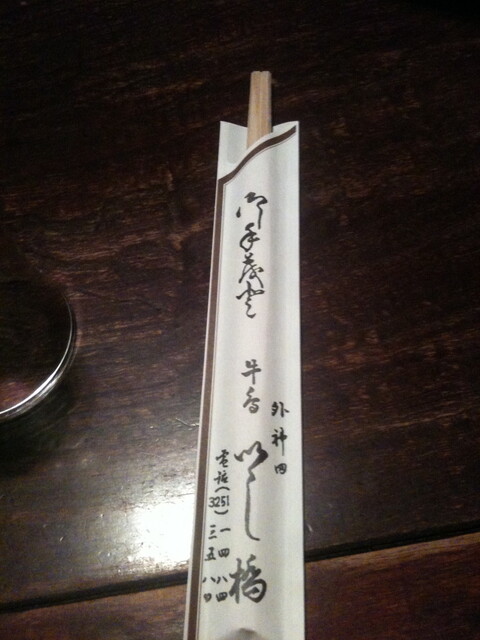 御手茂登
外神田
牛
いし橋
電話(3251)一四八四
三五八〇